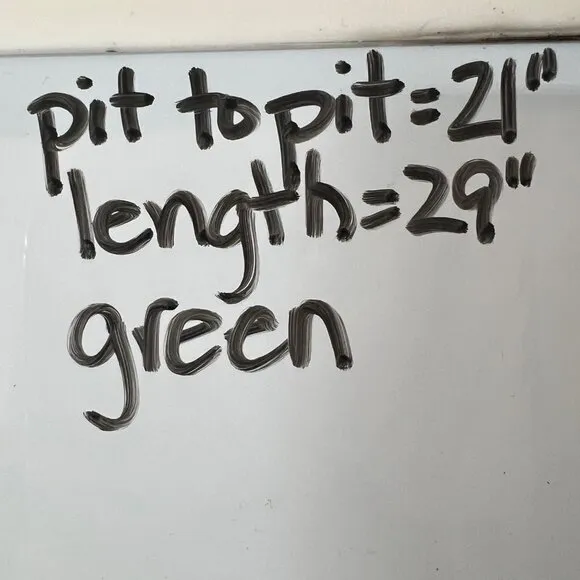 pit to pit=21"
length=29"
green